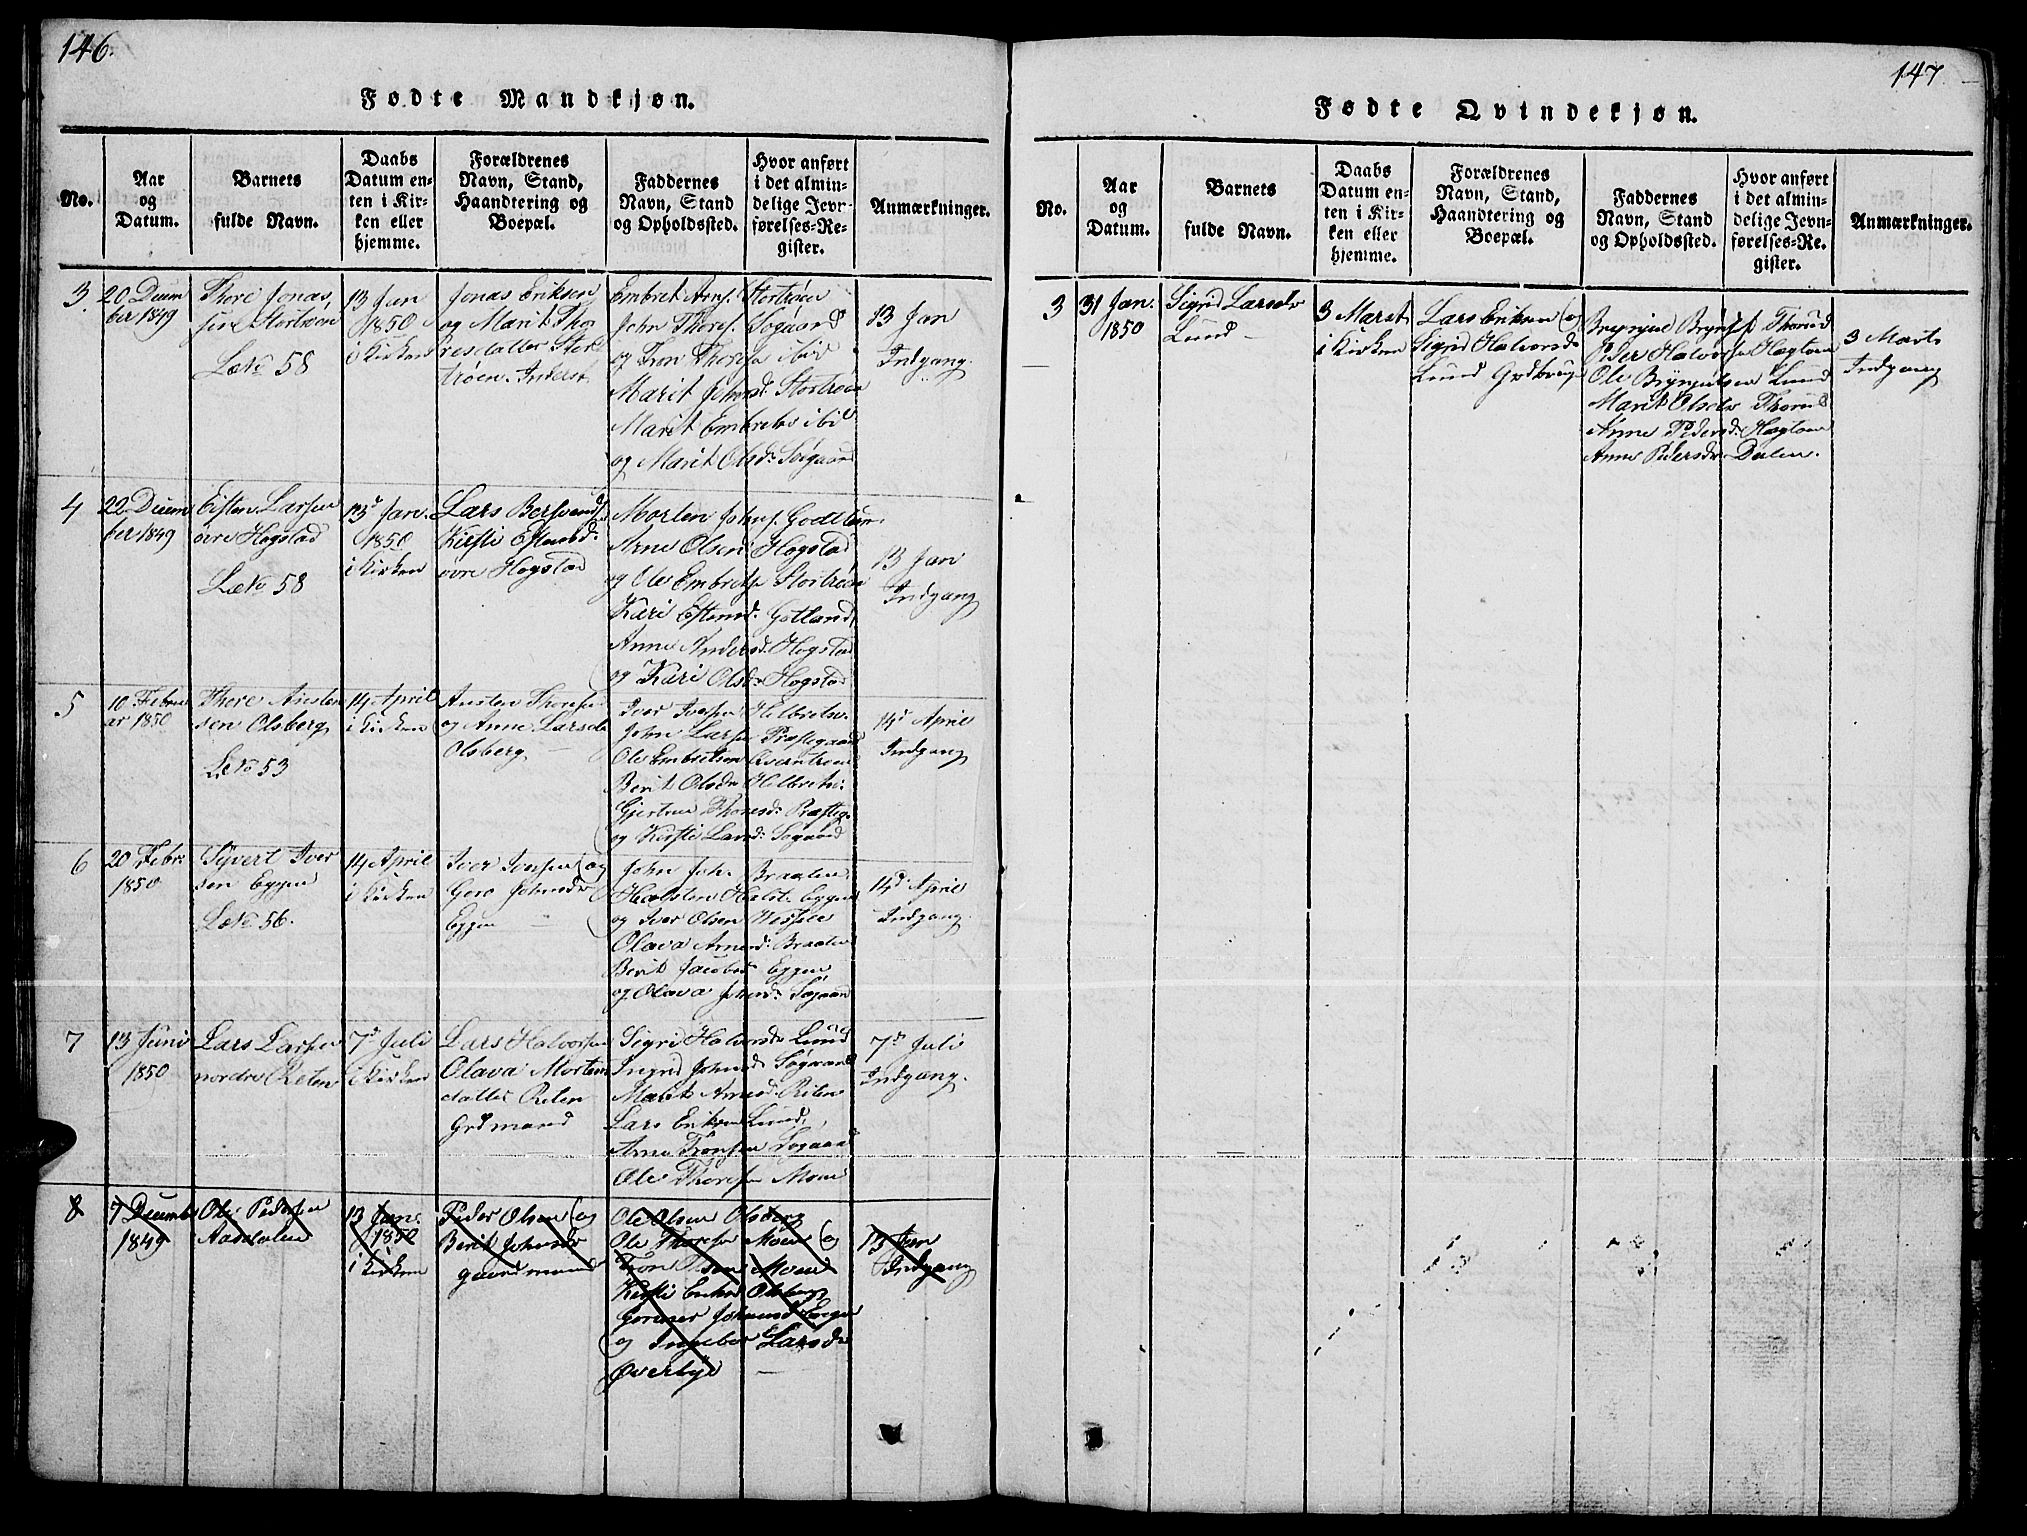 146.
Fødte Mandkjøn.
No.
Aar
og
Datum.
Barnets
fulde Navn.
Daabs
Datum en-
ten i Kir-
ken eller
hjemme.
Forældrenes
Navn, Stand,
Haandtering og
Boepæl.
Faddernes
Navn, Stand
og Opholdssted.
Hvor anført
i det almin-
delige Jevn-
førelses-Re-
gister.
Anmærkninger.
3
20 Decem
ber 1849
Thore Jonas,
sen Stortrøen
L. No 58
13 Jan
1850
i Kirken
Jonas Eriksen
og Marit Tho
resdatter Stor
trøen
Embret Arnf. Stortrøen
John Thoref. Søgaard
og Tron Thorefn ibid
Marit Johnsd. Stortrøen
Marit Embretsd ibid
og Marit Olsd. Søgaard
13 Jan
Indgang
4
22 Decem
ber 1849
Eisten Larsen
øvre Hogstad
L. No 58
13d Jan.
1850
i Kirken
Lars
Kirsti Estensd.
øvre Hogstad
Morten Johnf.
Arne Olsen Hogstad
og Ole Embretsn Stortrøen
Kari Estensd. Gotland,
Anne Andersd. Hogstad
og Kari Olsd. Hogstad
13 Jan
Indgang
5
10 Febru
ar 1850
Thore Aisten
sen Olsberg
L. No 53
14 April
i Kirken
Austen Thoresen
og Anne Larsdr
Olsberg
Iver Iversen
John Larsn Præstegaard
Ole Embretsen
Berit Olsdr
Gjertrue Thoresd. Præsteg.
og Kirsti Larsd. Søgaard
14d April
Indgang
6
20 Febr.
1850
Syvert Iver
sen Eggen
L. No. 56.
14 April
i Kirken
Iver Iversen og
Goro Johnsdr
Eggen
John Joh. Braaten
Halsten Halst. Eggen
og Iver Olsen
Olava Arnesd. Braaten
Berit Jacobsd Eggen
og Olava Johnsd. Søgaard
14d April
Indgang
7
13 Juni
1850
Lars Larsen
nordre Reten
7d Juli
i Kirken
Lars Halvorsen
Olava Mortens
datter Reten
Grdmand
Sigri Halvorsdr Lund
Ingrid Johnsd. Søgaard
Marit Arnesd. Reten
Lars Eriksen Lund,
Arne Tronsen Søgaard
Ole Thoresn Moen
7d Juli
Indgang.
8
7 Decembr
1849
Ole Pedersen
Aaedalen
13 Jan.
1850
i Kirken
Peder Olsen og
Berit Johnsdr
gaardmand
Ole Olsen Olsberg
Ole Thoresn Moen og
Tron Olsen Moen
Kirsti Eriksd Olsberg
Johnsd Eggen
og Ingebor Larsdr
Øverbye
13 Jan
Indgang
147
Fødte Qvindekjøn.
No.
Aar
og
Datum.
Barnets
fulde Navn.
Daabs
Datum en-
ten i Kir-
ken eller
hjemme.
Forældrenes
Navn, Stand,
Haandtering og
Boepæl.
Faddernes
Navn, Stand
og Opholdssted.
Hvor anført
i det almin-
delige Jevn-
førelses-Re-
gister.
Anmærkninger.
3
31 Jan.
1850
Sigrid Larsdr
Lund
3 Marts
i Kirken
Lars Eriksen og
Sigrid Halvorsdr
Lund Grdbrug.
Thorud
Peder Halvorsn Hægtoen
Ole Brynjulsen Lund
Marit Olsdr Thorud
Anne Pedersd. Hægtoen
Anne Pedersdr. Dalen.
3 Marts
Indgang